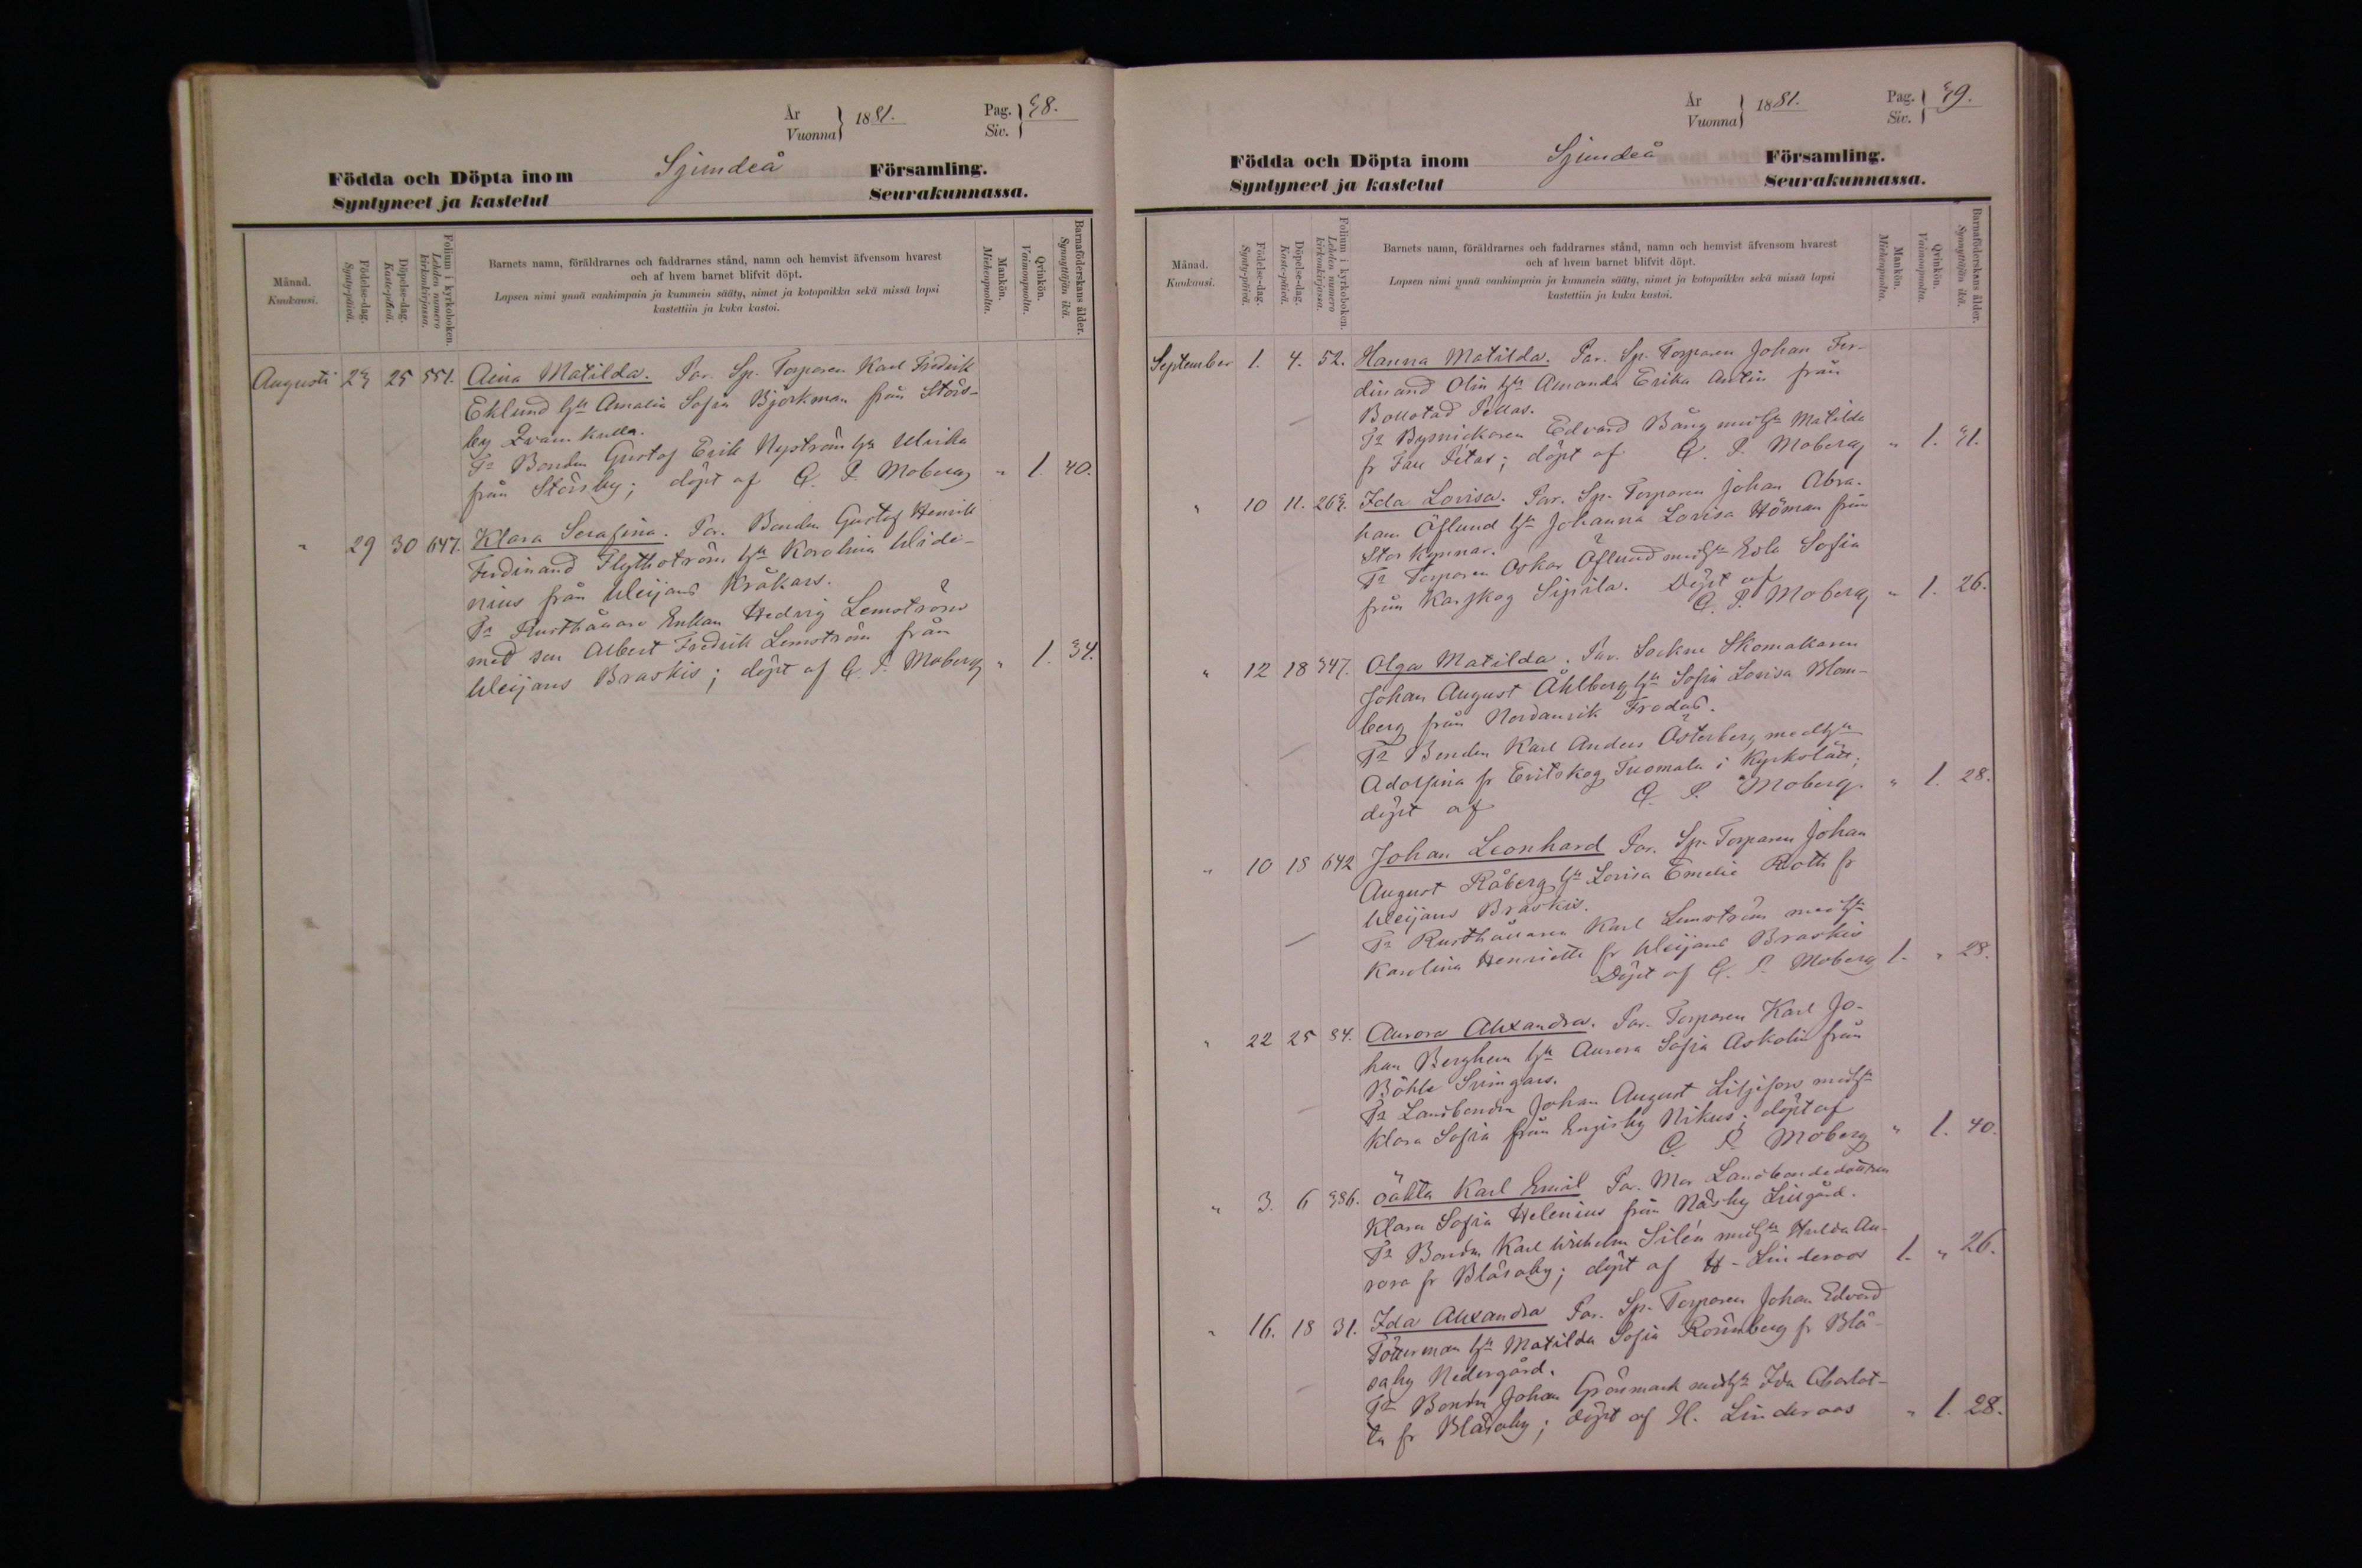 År
Vuonna } 1881.
Pag.
Siv. } 48.
Födda och Döpta inom Sjundeå Församling.
Syntyneet ja kastetut Seurakunnassa.
Månad.
Kuukausi.
Födelse-dag.
Synty-päivä.
Döpelse-dag.
Kaste-päivä.
Folium i kyrkoboken.
Lehden numero kirkonkirjassa.
Barnets namn, föräldrarnes och faddrarnes stånd, namn och hemvist äfvensom hvarest
och af hvem barnet blifvit döpt.
Lapsen nimi ynnä vanhimpain ja kummein sääty, nimet ja kotopaikka sekä missä lapsi
kastettiin ja kuka kastoi.
Mankön.
Miehenpuolta.
Qvinkön.
Vaimonpuolta.
Barnaföderskans ålder.
Synnyttäjän ikä.
Augusti 24 25 551. Aina Matilda. Par. Sp. Torparen Karl Fredrik
Eklund hu Amalia Sofia Björkman från Störs-
by Qvarnkulla.
Fr Bonden Gustaf Erik Nyström hu Ulrika
från Störsby; döpt af G. P. Moberg " 1 40.
" 29 30 647. Klara Serafina. Par. Bonden Gustaf Henrik
Ferdinand Flythström hu Karolina Wide-
nius från Weijans Kråkars.
Fr Rusthållare Enkan Hedvig Lemström
med son Albert Fredrik Lemström från
Weijans Braskis; döpt af G. P. Moberg " 1. 34.
År
Vuonna } 1881.
Pag.
Siv. } 49.
Födda och Döpta inom Sjundeå Församling.
Syntyneet ja kastetut Seurakunnassa.
Månad.
Kuukausi.
Födelse-dag.
Synty-päivä.
Döpelse-dag.
Kaste-päivä.
Folium i kyrkoboken.
Lehden numero kirkonkirjassa.
Barnets namn, föräldrarnes och faddrarnes stånd, namn och hemvist äfvensom hvarest
och af hvem barnet blifvit döpt.
Lapsen nimi ynnä vanhimpain ja kummein sääty, nimet ja kotopaikka sekä missä lapsi
kastettiin ja kuka kastoi.
Mankön.
Miehenpuolta.
Qvinkön.
Vaimonpuolta.
Barnaföderskans ålder.
Synnyttäjän ikä.
September 1. 4. 52. Hanna Matilda. Par. Sp. Torparen Johan Fer-
dinand Olin hu Amanda Erika Antin från
Bollstad Pellas.
Fr Bysnickaren Edvard Bång med hu Matilda
fr Pitas; döpt af G. P. Moberg " 1. 41.
" 10 11. 264. Ida Lovisa. Par. Sp. Torparen Johan Abra-
ham Öflund hu Johanna Lovisa Höman från
Stor Kynnar.
Fr Torparen Oskar Öflund med hu Eola Sofia
från Karskog Sipila. Döpt af
G. P. Moberg " 1. 26.
" 12 18 347. Olga Matilda. Par. Sockne Skomakaren
Johan August Åhlberg hu Sofia Lovisa Blom-
berg från Nordanvik Frodas.
Fr Bonden Karl Anders Österberg med hu
Adolfina fr Evitskog Tuomala i Kyrkslätt;
döpt af G. P. Moberg. " 1. 28.
" 10 18 642 Johan Leonhard Par. Sp. Torparen Johan
August Råberg hu Lovisa Emelie Roth fr
Weijans Braskis.
Fr Rusthållaren Karl Lemström med hu
Karolina Henriette fr Weijans Braskis
Döpt af G. P. Moberg 1. " 28.
" 22 25 84. Aurora Alexandra. Par. Torparen Karl Jo-
han Berghem hu Aurora Sofia Askolin från
Böhle Svingars.
Fr Landbonden Johan August Liljefors med hu
Klara Sofia från Engisby Nikus; döpt af
G. P. Moberg " 1. 40.
" 3. 6 386. oäkta Karl Emil Par. Mor Landbondedottren
Klara Sofia Helenius från Näsby Lillgård.
Fr Bonden Karl Wilhelm Silén med hu Hulda Au-
rora fr Blåsaby; döpt af H. Linderoos 1. " 26.
" 16. 18 31. Ida Alexandra Par. Sp. Torparen Johan Edvard
Fötterman hu Matilda Sofia Rönnberg fr Blå-
saby Nedergård.
Fr Bonden Johan Grönmark med hu Ida Charlot-
ta fr Blåsaby; döpt af H. Linderoos " 1. 28.